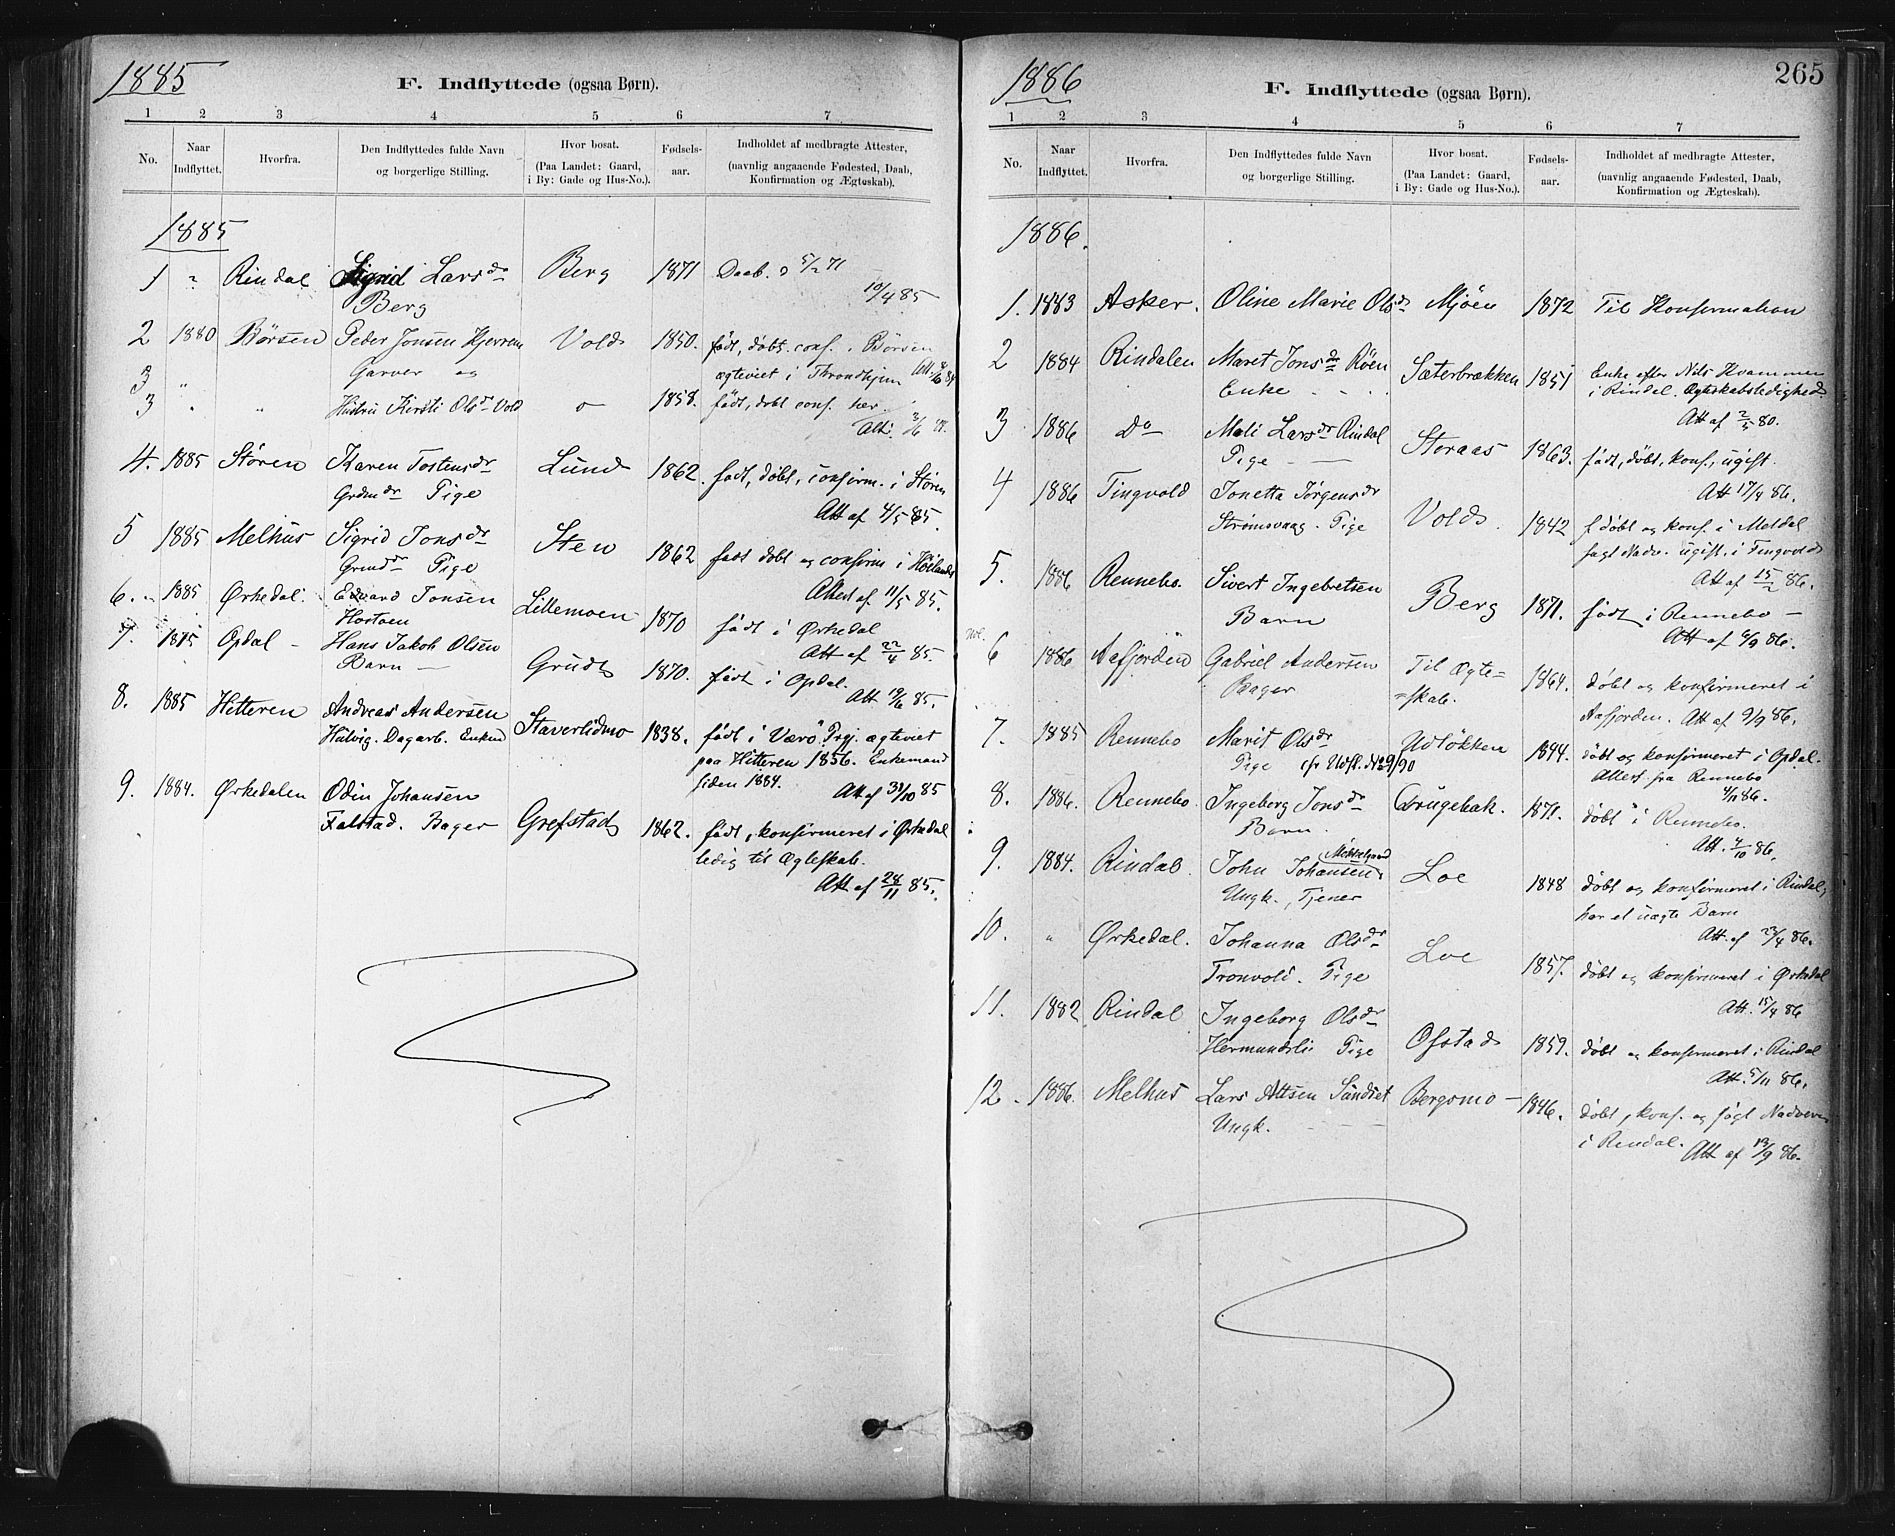 1885
F. Indflyttede (ogsaa Børn).
1 2 3 4 5 6 7
No. Naar Indflyttet. Hvorfra. Den Indflyttedes fulde Navn og borgerlige Stilling. Hvor bosat. (Paa Landet: Gaard, i By: Gade og Hus-No.). Fødsels-aar. Indholdet af medbragte Attester, (navnlig angaaende Fødested, Daab, Konfirmation og Ægteskab).
1885
1 " Rindal Sigrid Larsdr Berg 1871 Daab. 5/2 71
Berg 10/4 85
2 1880 Børsen Peder Jonsen Hjerrem Vold 1850. født, døbt, conf. i Børsen
Garver og ægteviet i Throndhjem
3 "
3 " " Hustru Kirsti Olsdr Vold 1858. født, døbt conf. her.
4. 1885 Støren Karen Tostensdr Lund 1862. født, døbt, confirm. i Støren
Grdmdr Pige Att af 4/5 85.
5 1885 Melhus Sigrid Jonsdr Sten 1862 født døbt og confirm i Høilandet
Pige Attest af 11/5 85.
6. 1885 Ørkedal. Edvard Jonsen Lillemoen 1870 født i Ørkedal
Hostoen Att af 22/4 85.
7 1875 Opdal - Hans Jakob Olsen Grudt 1870. født i Opdal.
Barn Att 19/6 85.
8. 1885 Hitteren Andreas Andersen Staverlidmo 1838. født i Værø Prgj. ægteviet
Dagarb. Enkem paa Hitteren 1856. Enkemand
siden 1884. Att af 31/10 85
9. 1884. Ørkedalen Odin Johansen Grefstad 1862. født, konfirmeret i Ørkedal
Falstad. Bager ledig til Ægteskab.
Att af 28/11 85.
1886
265
F. Indflyttede (ogsaa Børn).
1 2 3 4 5 6 7
No. Naar Indflyttet. Hvorfra. Den Indflyttedes fulde Navn og borgerlige Stilling. Hvor bosat. (Paa Landet: Gaard, i By: Gade og Hus-No.). Fødsels-aar. Indholdet af medbragte Attester, (navnlig angaaende Fødested, Daab, Konfirmation og Ægteskab).
1886.
1. 1883 Asker. Oline Marie Olsdr Mjöen 1872 Til Konfirmation
2 1884 Rindalen Maret Jonsdr Röen Sæterbrækken 1851 Enke efter Nils Kvammen
Enke i Rindal. Ægteskabsledighed
Att af 2/5 80.
3 1886 Do Mali Larsdr Rindal Storaas 1863. født, døbt, konf., ugift.
Pige Att 17/4 86.
4 1886 Tingvold Jonetta Jørgensdr Vold. 1842 f. døbt og konf. i Meldal
Strømsvaag. Pige søgt Nadv. ugift, i Tingvold
Att af 15/2 86.
5. 1886 Rennebo. Sivert Ingebretsen Berg 1871. født i Rennebo
Barn Att af 6/9 86.
6 1886 Aafjorden Gabriel Andersen Til Ægte= 1864. døbt og konfirmeret i
Bager =skab. Aafjorden. Att af 9/9 86.
7. 1885 Rennebo Marit Olsdr Udløkken 1894. døbt og konfirmeret i Opdal.
Pige cfr Udfl. No 9/90 Attest fra Rennebo
4/11 86.
8. 1886. Rennebo. Ingeborg Jonsdr Grugebak. 1871. døbt i Rennebo.
Barn. Att. 4/10 86.
9. 1884. Rindal. John Johansen Loe 1848 døbt og konfirmeret i Rindal,
Ungk., Tjener har et uægte Barn
Att. af 23/4 86.
10. " Ørkedal. Johanna Olsdr Loe 1857. døbt og konfirmeret i Ørkedal
Tronvold. Pige Att. 15/4 86
11. 1882 Rindal Ingeborg Olsdr Ofstad 1859. døbt og konfirmeret i Rindal
Hermundslie Pige Att. 5/11 86.
12. 1886. Melhus Lars Attsen Sundset Bergsmo 1846. døbt, konf. og søgt Nadveren
Ungk. i Rindal. Att af 13/9 86.